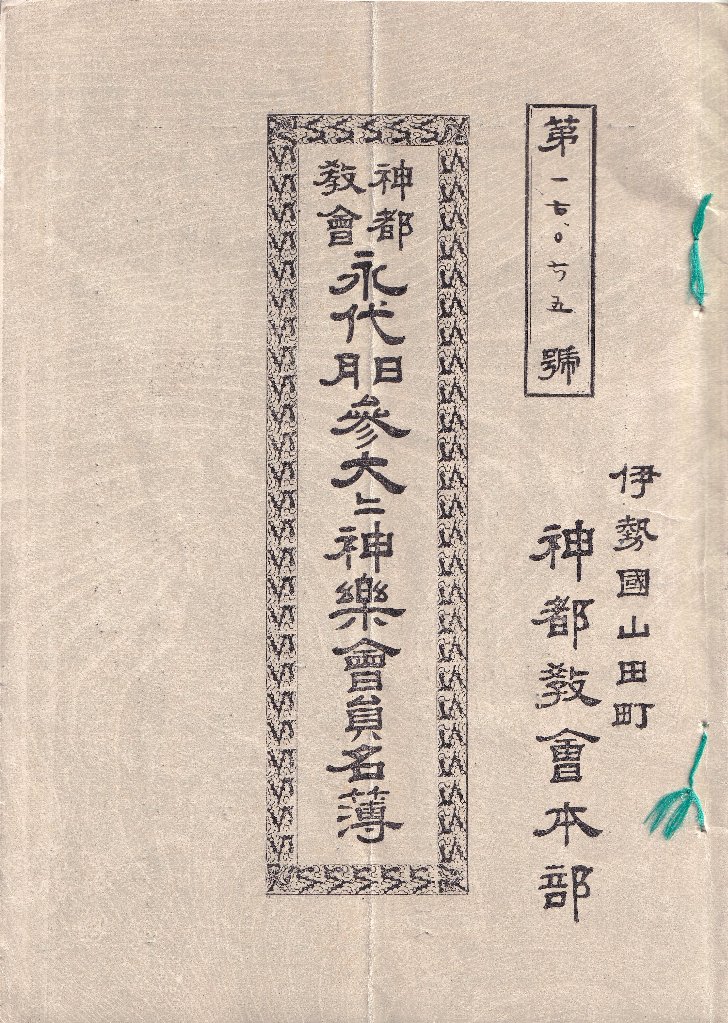 伊勢國山田町
第一七、〇七五號
神都敎會本部
神都
敎會
永代日月參大〻神樂會員名簿